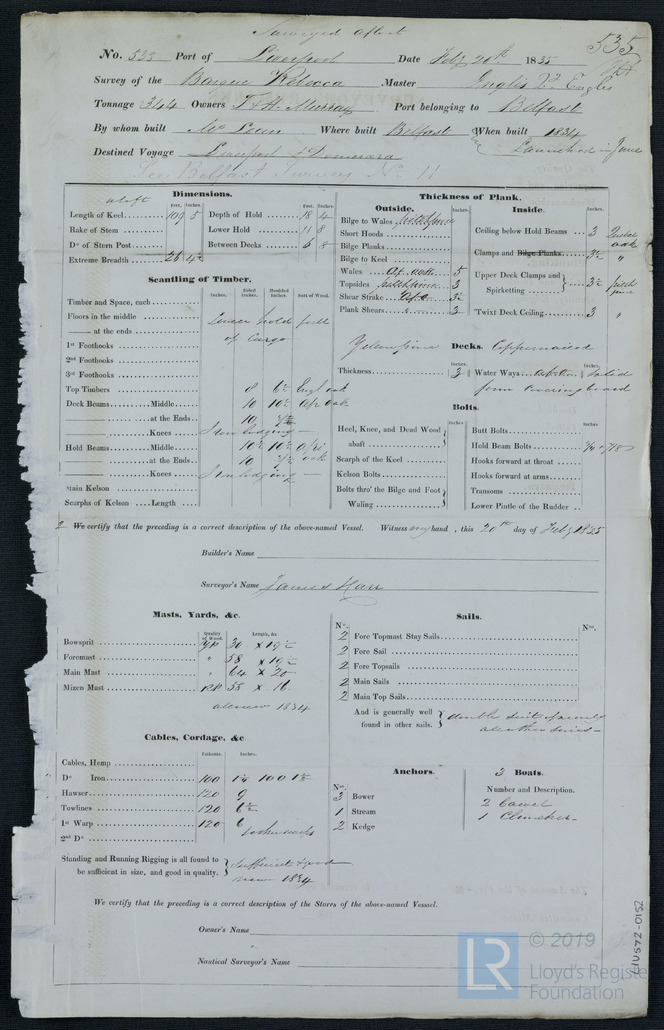 Surveyed afloat
535
No. 533 Port of Liverpool Date Feby 20th 1835
Survey of the Barque Rebecca Master Englis
Tonnage 344 Owners T & A Murray Port belonging to Belfast
By whom built Where built Belfast When built 1834
Launched in June
Destined Voyage Liverpool & Demerara
See Belfast Survey No 11
Dimensions.
afloat Feet. Inches.
Length of Keel 109 5
Rake of Stem
Do of Stern Post
Extreme Breadth 26 4½
Feet. Inches.
Depth of Hold 18 4
Lower Hold 11 8
Between Decks 6 8
Scantling of Timber.
Inches. Sided Inches. Moulded Inches. Sort of Wood.
Timber and Space, each
Floors in the middle Lower hold full
—— at the ends of Cargo
1st Foothooks
2nd Foothooks
3rd Foothooks
Top Timbers 8 6½ Engl oak
Deck Beams Middle 10 10½ Afr oak
—— at the Ends 10 7½
—— Knees Iron lodging
Hold Beams Middle 10½ 10½ Afri
—— at the Ends 10 7½ oak
—— Knees Iron lodging
Main Kelson
Scarphs of Kelson Length
Thickness of Plank.
Outside. Inches.
Bilge to Wales pitch pine
Short Hoods
Bilge Planks
Bilge to Keel
Wales Af. oak 5
Topsides pitch pine 3
Shear Strake Af o 3½
Plank Shears 3
Inside. Inches.
Ceiling below Hold Beams 3
oak
Clamps and Bilge Planks 3½
Upper Deck Clamps and
Spirketting 3½ pitch
pine
'Twixt Deck Ceiling 3 "
Yellow pine Decks.
Inches.
Thickness 3
Inches.
Water Ways solid
form Coveringboard
Bolts.
Inches
Heel, Knee, and Dead Wood
abaft
Scarph of the Keel
Kelson Bolts
Bolts thro' the Bilge and Foot
Waling
Inches
Butt Bolts
Hold Beam Bolts ¾ & 7/8
Hooks forward at throat
Hooks forward at arms
Transoms
Lower Pintle of the Rudder
2 We certify that the preceding is a correct description of the above-named Vessel. Witness my hand, this 20th day of Feby 1835
Builder's Name
Surveyor's Name James Karr
Masts, Yards, &c.
Quality of Wood. Length, &c
Bowsprit YP 30 x 19½
Foremast " 58 x 19½
Main Mast " 64 x 20
Mizen Mast RP 55 x 16
all new 1834
Sails.
No. No.
2 Fore Topmast Stay Sails
2 Fore Sail
2 Fore Topsails
2 Main Sails
2 Main Top Sails
And is generally well
found in other sails. double suit of
all other
Cables, Cordage, &c
Fathoms. Inches.
Cables, Hemp
Do Iron 100 1¼ 100 1⅛
Hawser 120 9
Towlines 120 6½
1st Warp 120 6
2nd Do
Standing and Running Rigging is all found to
be sufficient in size, and good in quality. sufficient & good
new 1834
Anchors.
No.
3 Bower
1 Stream
2 Kedge
3 Boats.
Number and Description.
2 Carvel
1 Clincher
We certify that the preceding is a correct description of the Stores of the above-named Vesssel.
Owner's Name
Nautical Surveyor's Name
LIV572-0152
LR
© 2019
Lloyd's Register
Foundation